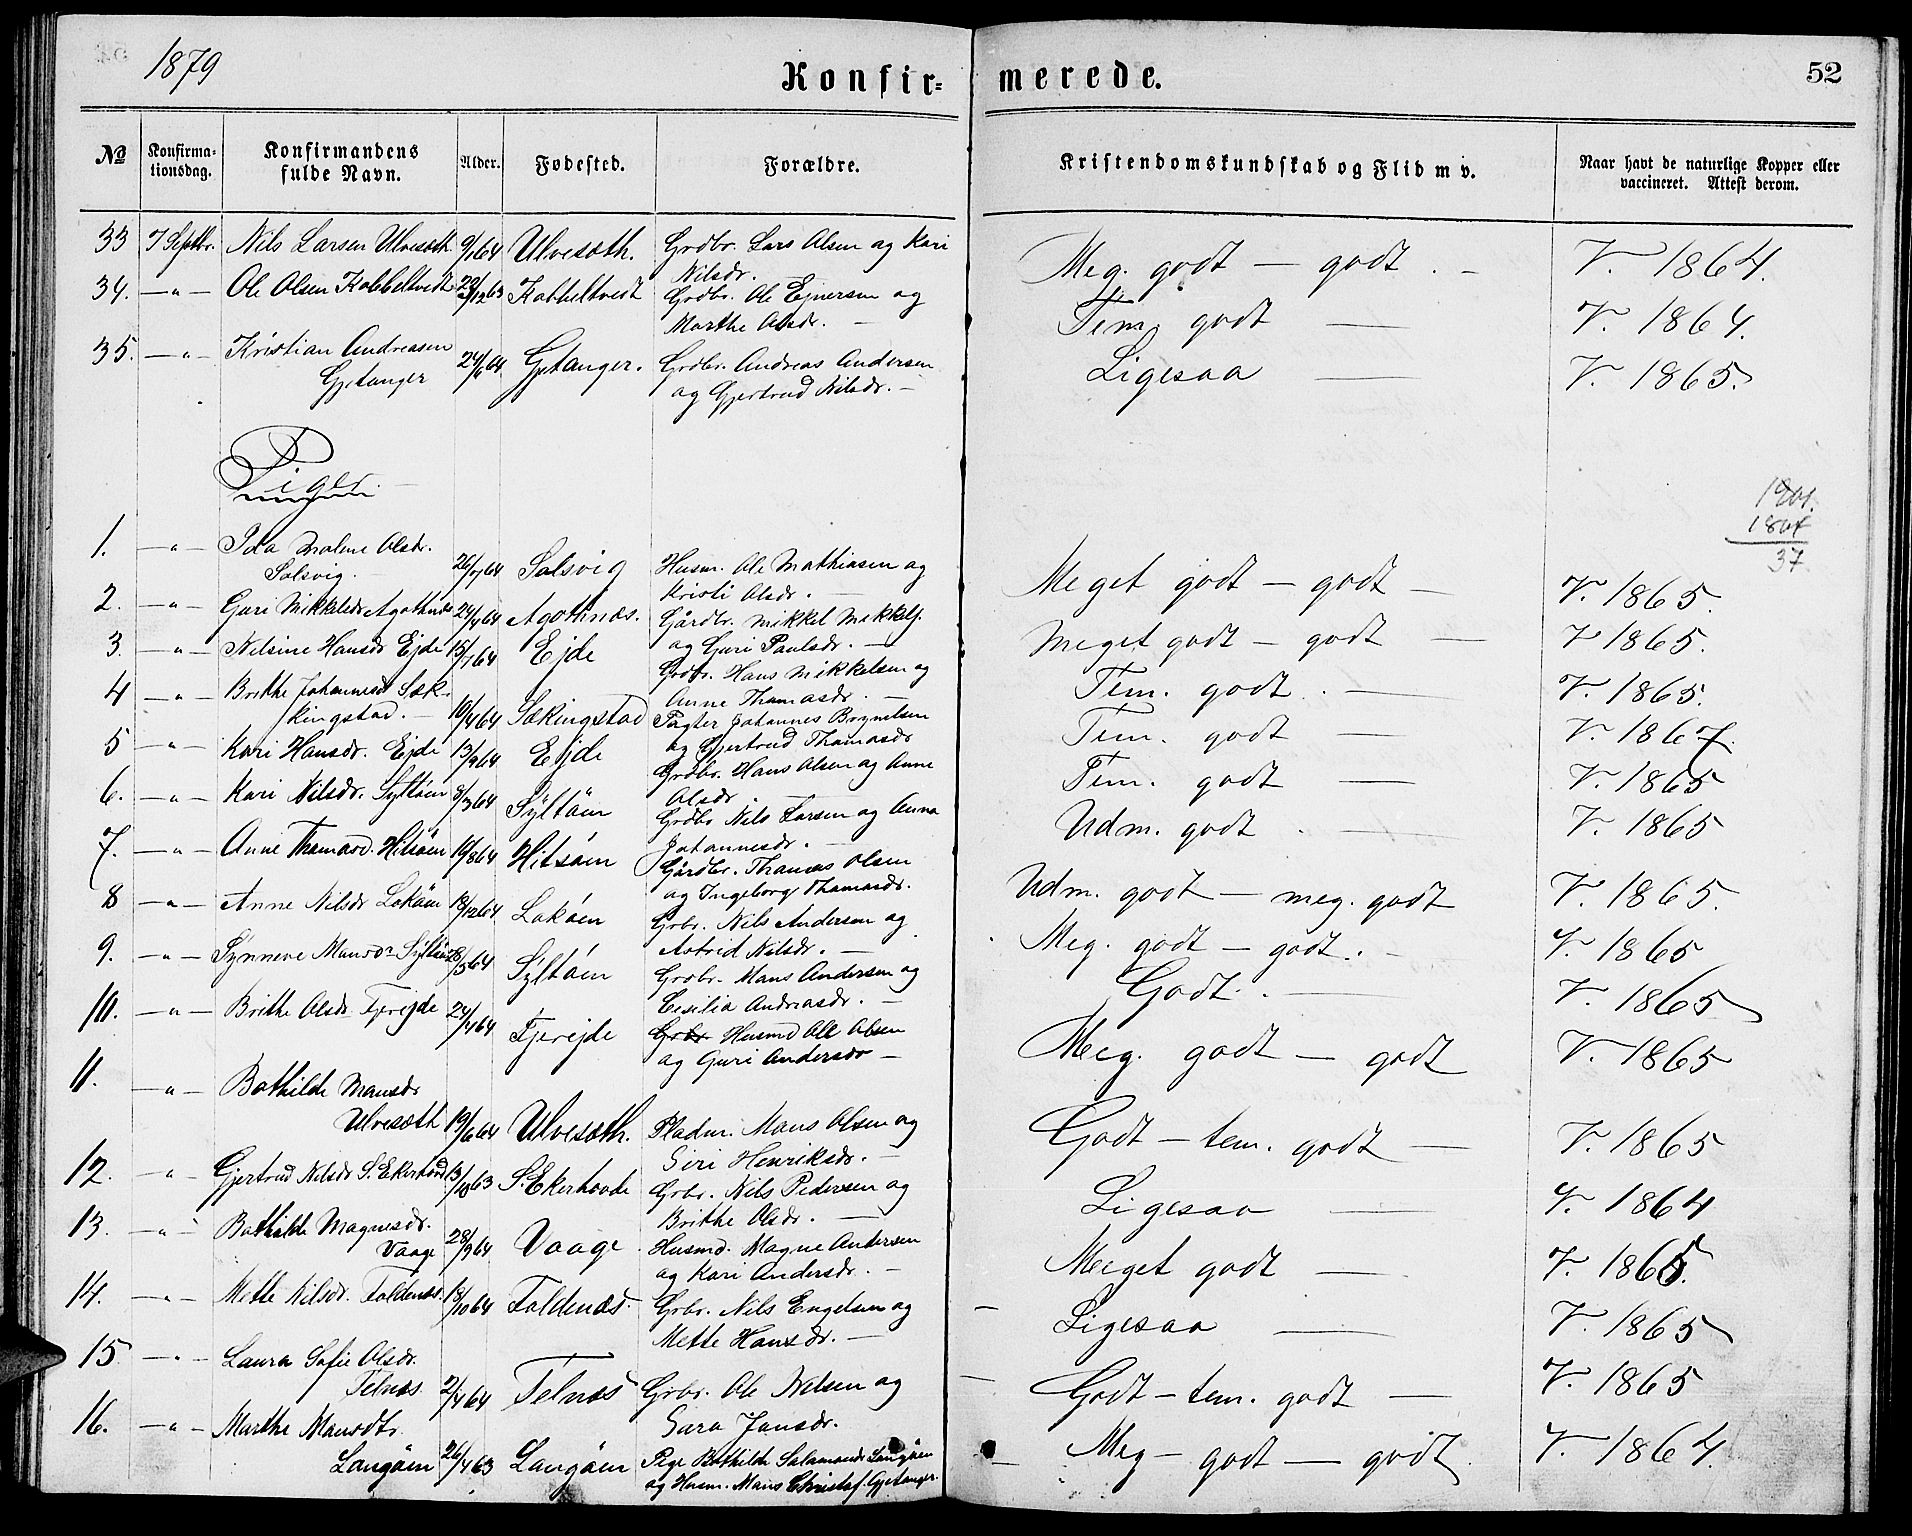 1879
Konfir=merede.
52
No
Konfirma=
tionsdag.
Konfirmandens
fulde Navn.
Alder.
Fødested.
Forældre.
Kristendomskundskab og Flid m v.
Naar havt de naturlige Kopper eller
vaccineret. Attest derom.
33 7 Septbr. Nils Larsen Ulvesæth 9/1 64 Ulvesæth. Grdbr. Lars Olsen og Kari
Nilsdr. Meg. godt — godt. - V. 1864.
34. —"— Ole Olsen Kobbeltvedt 22/12 63 Kobbeltvedt Grdbr. Ole Ejnersen og
Marthe Olsdr. — Tem. godt — V. 1864.
35. —"— Kristian Andreasen
Gjetanger 24/6 64 Gjetanger. Grdbr. Andreas Andersen
og Gjertrud Nilsdr. — Ligesaa — V. 1865.
Piger
1901.
1864
37
1. —"— Ida Malene Olsdr.
Solsvig. 26/7 64 Solsvig Husm. Ole Mathiasen og
Kristi Olsdr. — Meget godt — godt — V. 1865.
2. —"— Guri Mikkelsdr Agothnæs 24/4 64 Agothnæs. Gårdbr. Mikkel Mikkels.
og Guri Paulsdr. — Meget godt — godt — V 1865.
3. —"— Nelsine Hansdr Ejde 15/7 64 Ejde Grdbr. Hans Mikkelsen og
Anne Thomasdr. — Tem. godt. — V. 1865.
4 —"— Brithe Johannesd Sæk-
kingstad. — 10/4 64 Sækingstad Pagter Johannes Brynilsen
og Gjertrud Thomasdr Tem. godt — V. 1867.
5 —"— Kari Hansdr. Ejde 13/9 64 Ejde Grdbr. Hans Olsen og Anne
Olsdr. Tem. godt — V. 1865
6. —"— Kari Nilsdr. Syltöen 8/3 64 Syltöen Grdbr Nils Larsen og Anna
Johannesdr. — Udm. godt. — V. 1865
7. —"— Anne Thomasd. Hitsöen 10/8 64 Hitsöen Gårdbr. Thomas Olsen
og Ingeborg Thomasdr. Udm. godt — meg. godt V. 1865.
8 —"— Anne Nilsdr Loköen 18/12 64 Loköen Grbr. Nils Andersen og
Astrid Nilsdr. — Meg. godt — godt. - V. 1865
9. —"— Synneve Mansdr Syltöen 28/5 64 Syltöen Grdbr. Mans Andersen og
Cecilia Andreasdr. — Godt. — V. 1865
10. —"— Brithe Olsdr Tjerejde 24/4 64 Tjerejde Grbr Husmd Ole Olsen
og Guri Andersdr — Meg. godt — godt V. 1865
11. —"— Bothilde Mansdr
Ulvesæth 19/6 64 Ulvesæth. Pladsm. Mans Olsen og
Siri Henriksdr. — Godt — tem. godt — V. 1865
12. —" Gjertrud Nilsdr S. Ekerhovd 13/10 63 S. Ekerhovde Grbr. Nils Pedersen og
Brithe Olsdr. — Ligesaa — V. 1864
13. —"— Bothilde Magnesdr.
Vaage 28/9 64 Vaage. Husmd. Magne Andersen
og Kari Andersdr. — Meget godt — V. 1865.
14. —"— Mette Nilsdr. Foldenæs. 18/10 64 Foldenæs. Grbr. Nils Engelsen og
Mette Hansdr. — Ligesaa — V. 1865
15 —"— Laura Sofie Olsdr.
Telnæs 2/4 64 Telnæs Grbr. Ole Nelsen og
Sara Jansdr. Godt — tem. godt — V. 1865
16. —"— Marthe Mansdtr
Langöen 26/4 63 Langöen Pige Bothilde Salamonsd Langöen
og Husm. Mans Christof. Gjetanger. Meg — godt — godt V. 1864.